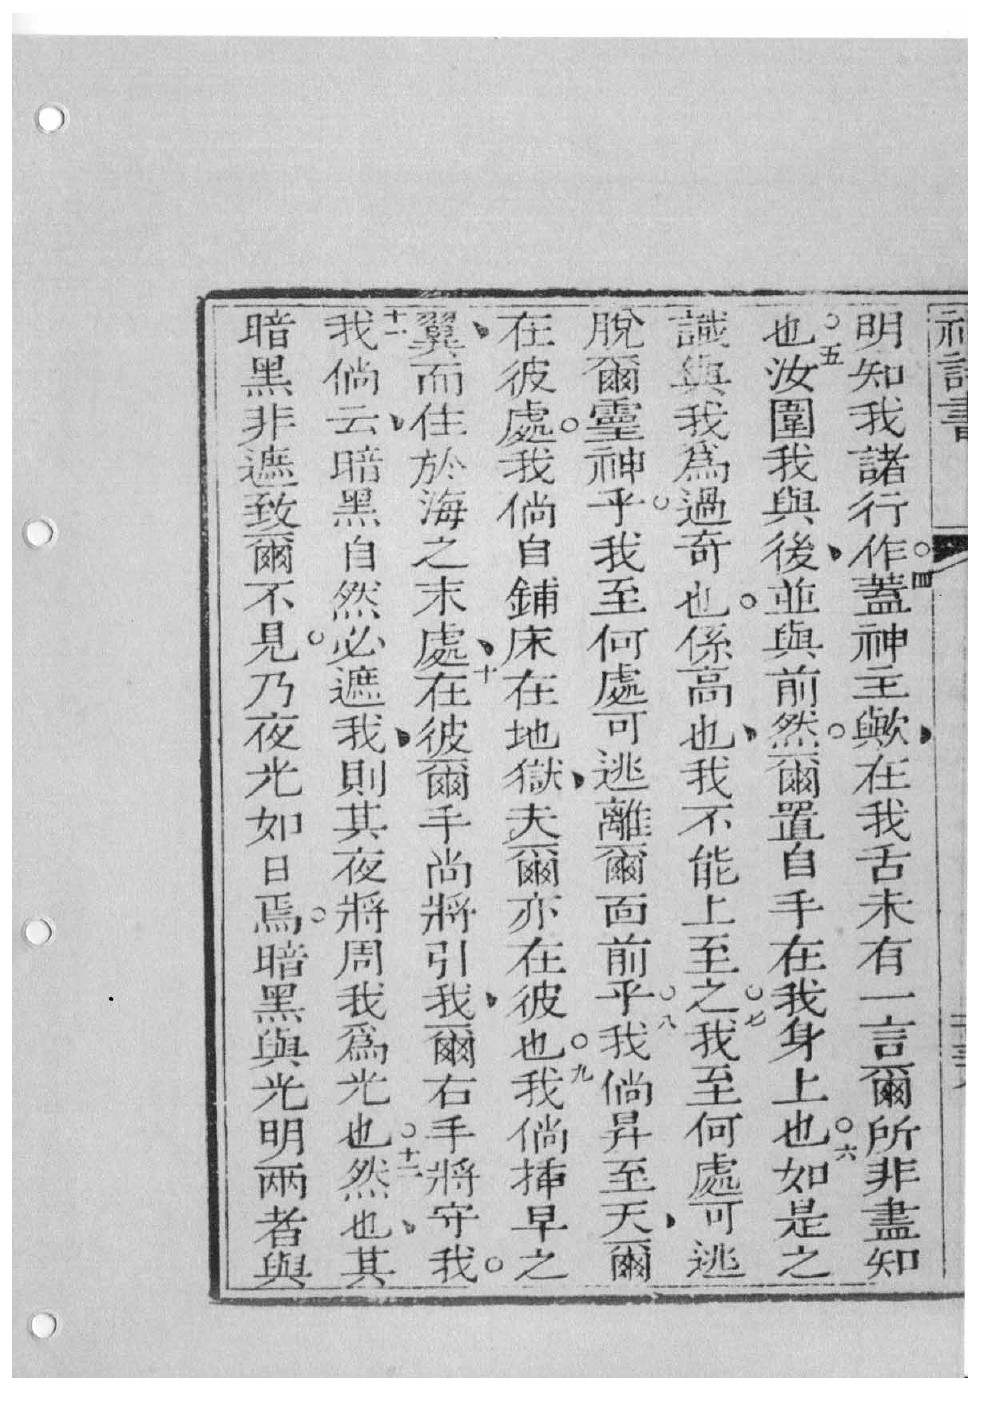 神詩書
明知我諸行作○四蓋神主歟、在我舌未有一言爾所非盡知
也○五汝圍我與後、並與前然○爾置自手在我身上也○六如是之
識與我爲過○奇也○係高也、我不能上至之○七我至何處可逃
脫爾靈神乎我至何處可逃離爾面前乎○八我倘昇至天、爾
在彼處○我倘自鋪床在地獄、夫爾亦在彼也○九我倘揷早之
翼、而住於海之末處、十在彼爾手尚將引我、爾右手將守我○
十一我倘云、暗黑自然必遮我、則其夜將周我爲光也○十二然也、其
暗黑非遮致爾不見○乃夜光如日焉○暗黑與光明兩者與